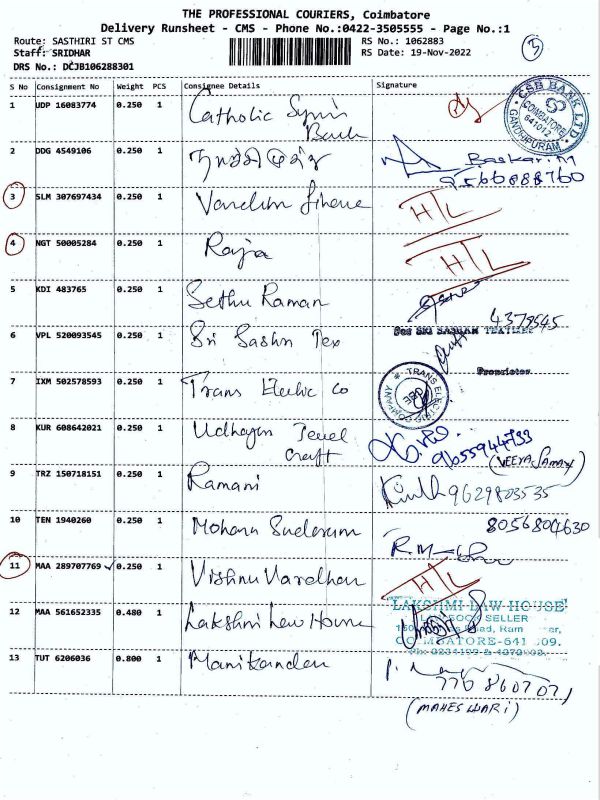 THE PROFESSIONAL COURIERS, Coimbatore
Delivery Runsheet - CMS - Phone No.:0422-3505555 - Page No.:1
Route: SASTHIRI ST CMS
RS No.: 1062883
Staff: SRIDHAR
RS Date: 19-Nov-2022
3
DRS No.: DCJB106288301
S No Consignment No Weight PCS Consignee Details Signature
1 UDP 16083774 0.250 1 Catholic Syrin
Bank
CSB BANK LTD.
COIMBATORE
641012
GANDHIPURAM
2 DDG 4549106 0.250 1
Baskar.M
9566888760
3 SLM 307697434 0.250 1 H T L
4 NGT 50005284 0.250 1 Raja H T L
5 KDI 483765 0.250 1 Sethu Raman
4379545
6 VPL 520093545 0.250 1 Sri Sashn Tex
For SRI SASHAN TEXTILES
Proprietor
7 IXM 502578593 0.250 1 Trans Electric Co
TRANS ELECTRIC COMPANY
CBE
8 KUR 608642021 0.250 1 Udhayam Jewel
Craft
9655944733
(VEERASAMY)
9 TRZ 150718151 0.250 1 Ramani
9629803535
10 TEN 1940260 0.250 1 Mohana Sundaram
8056804630
11 MAA 289707769 0.250 1 Vishnu Vardhan H T L
12 MAA 561652335 0.480 1 Lakshmi Law House
LAKSHMI LAW HOUSE
LAW BOOK SELLER
Road, Ram
COIMBATORE-641 009.
13 TUT 6206036 0.800 1 Manikandan
(MAHESWARI)